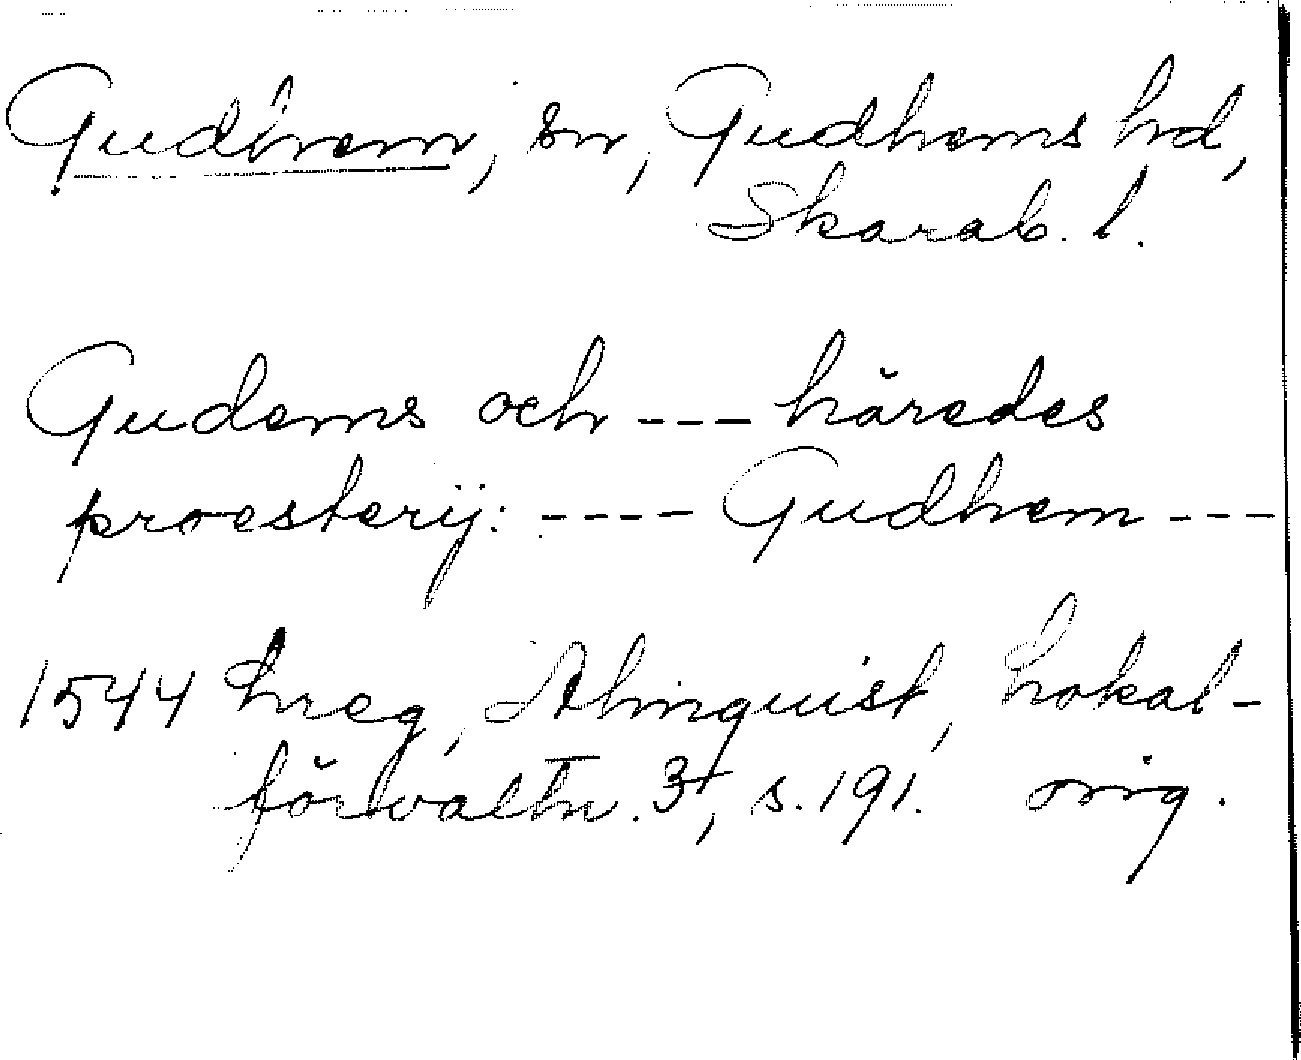 Gudhem, sn, Gudhems hd,
Skarab. l.
Gudems och --- häredes
proesterij: ---- Gudhem ---
1544 hreg, Almquist, Lokal-
förvaltn. 3, s. 191. orig.